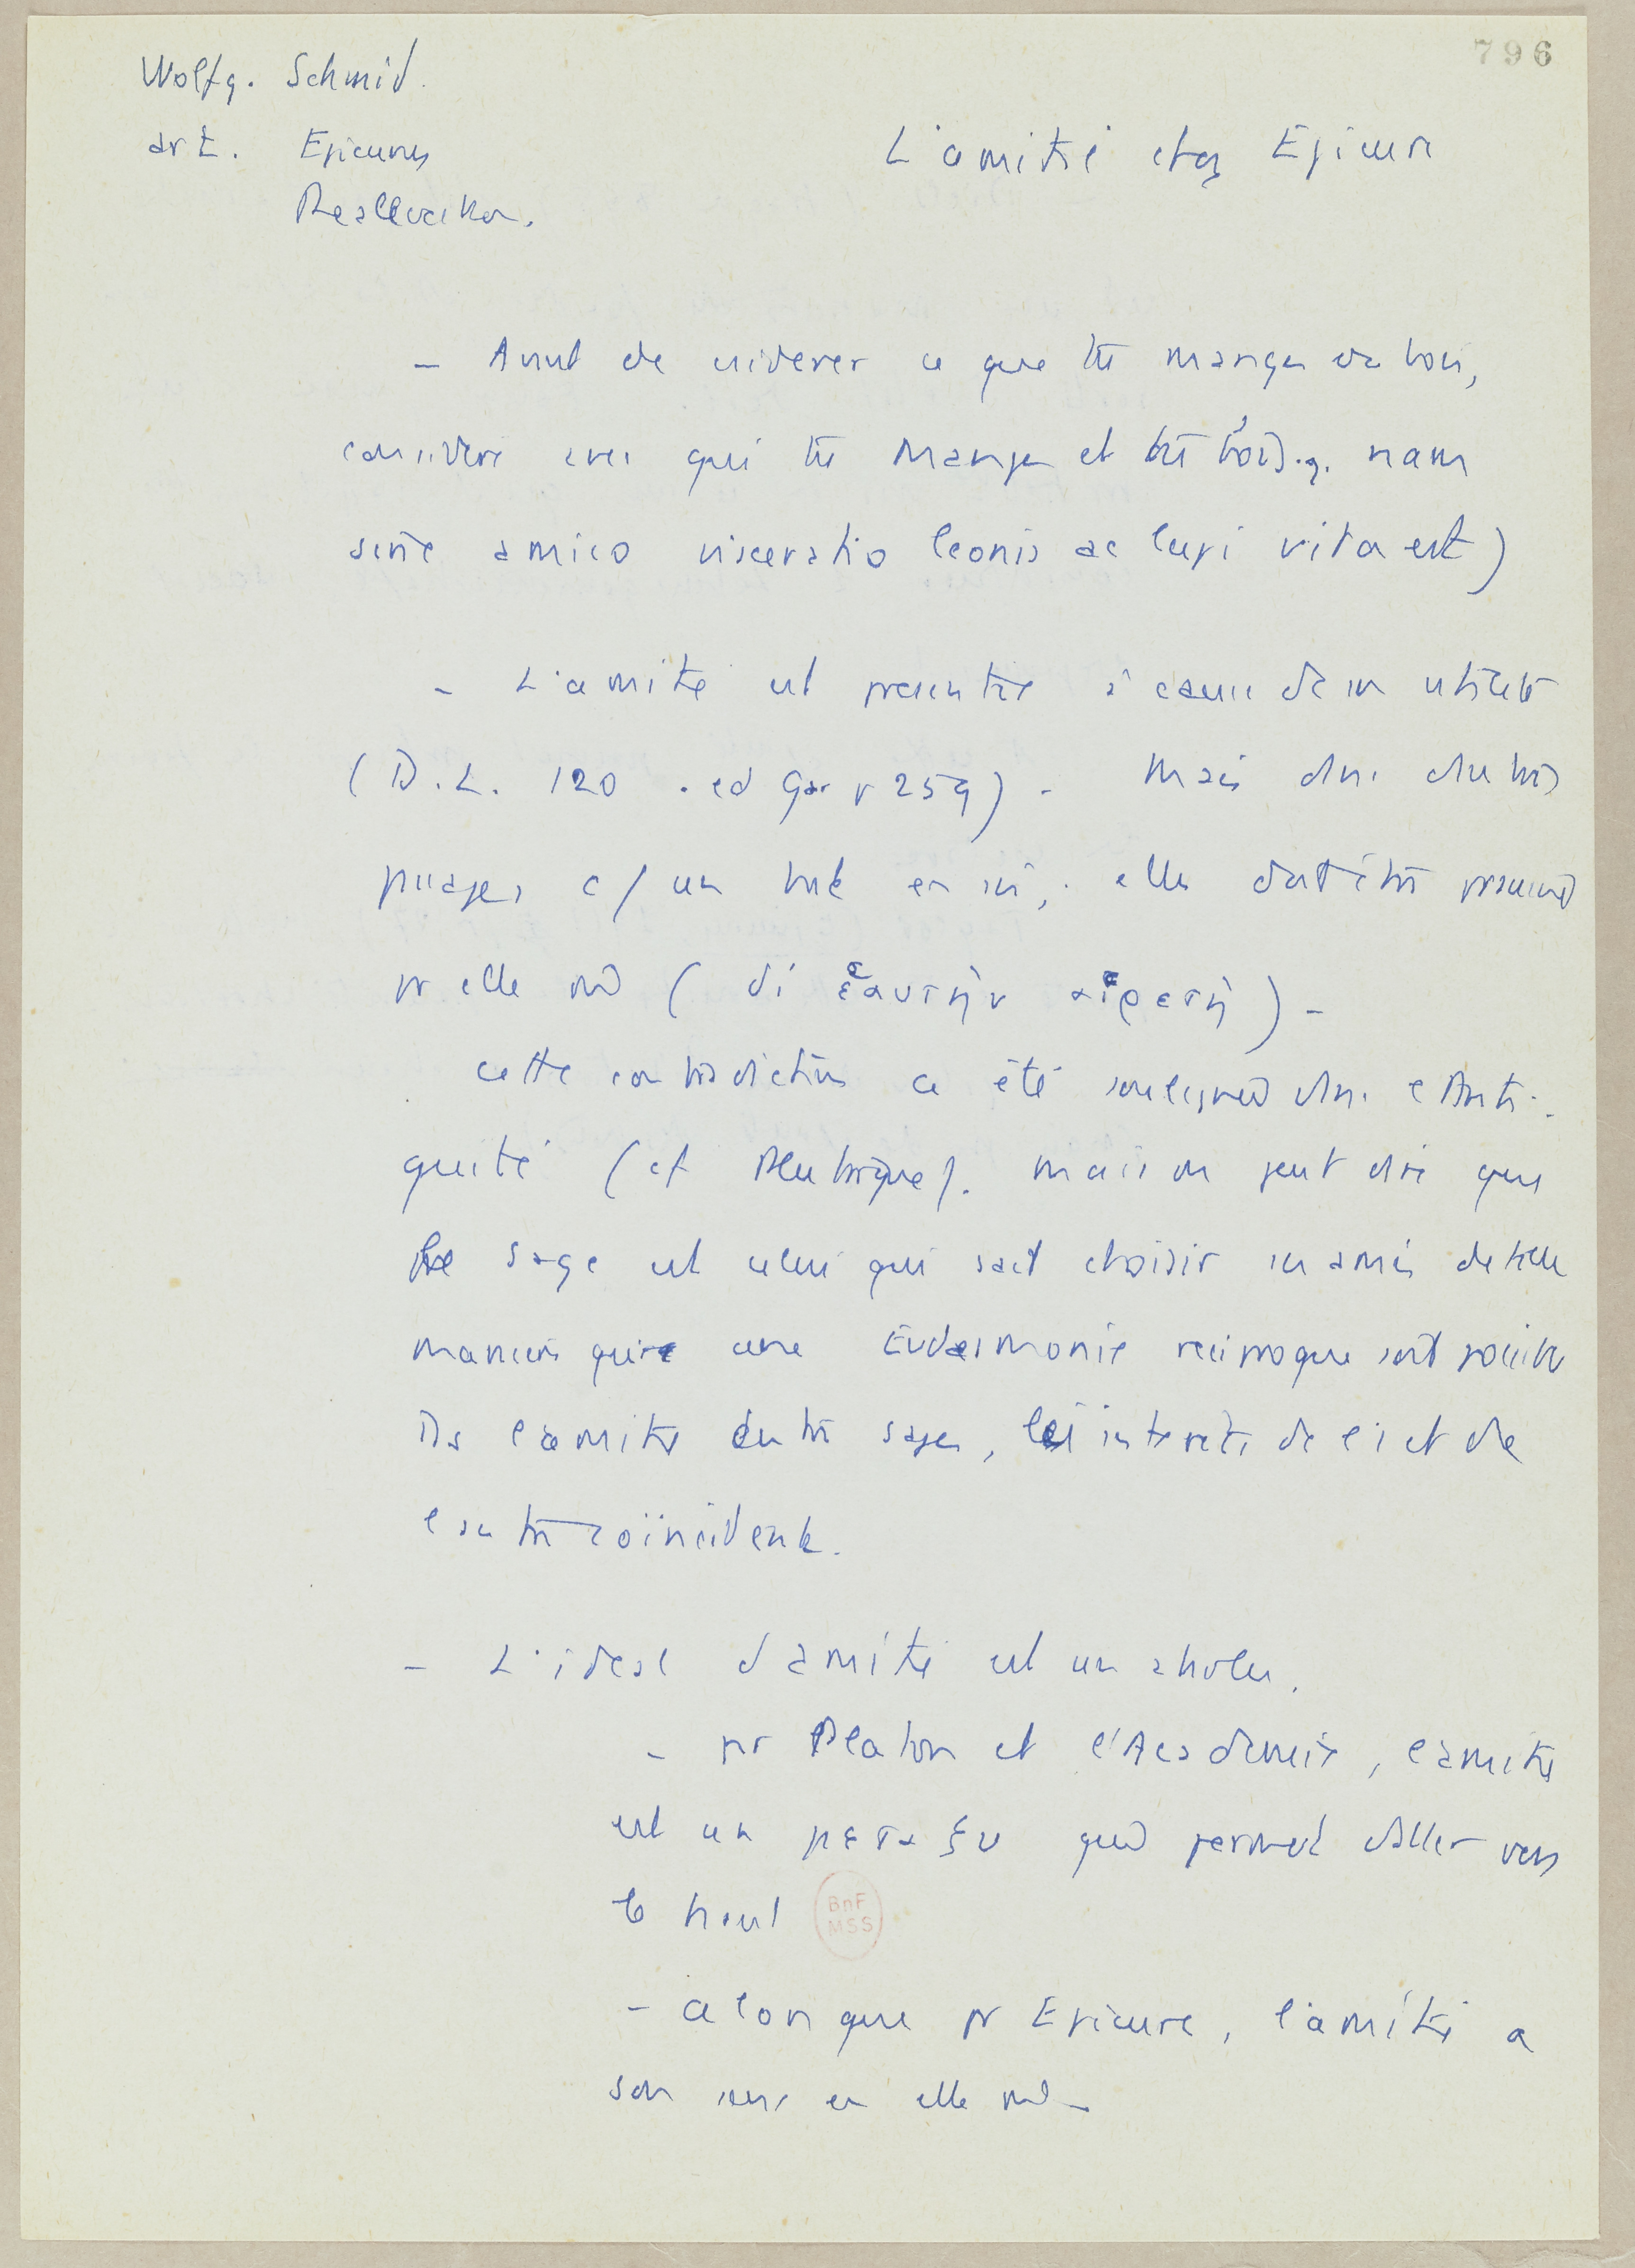 796
Wolfg. Schmid.
art. Epicurus
Reallexikon.
L'amitié chez Epicure
- Avant de considerer ce que tu manges ou bois,
considere avec qui tu manges et tu bois. nam
sine amico visceratio leonis ac lupi vita est)
- L'amitié est presentée à cause de son utilité
(D.L. 120 . ed Gar p 259) - Mais dans d'autres
passages c/ un but en soi, elle doit être
pr elle m̂ (δι' ἑαυτὴν αἱρετή) -
cette contradiction a été soulignée dans l'Anti-
quité (cf Plutarque). mais on peut dire que
le sage est celui qui sait choisir ses amis de telle
maniere que une Eudaimonie reciproque soit possible
Ds l'amitié entre sages, les interets de l'1 et de
l'autre coïncident.
- L'ideal d'amitié est un absolu.
- pr Platon et l'Academie, l'amitié
est un μεταξυ qui permet d'aller vers
le haut
BnF
MSS
- alors que pr Epicure, l'amitié a
son sens en elle m̂ -